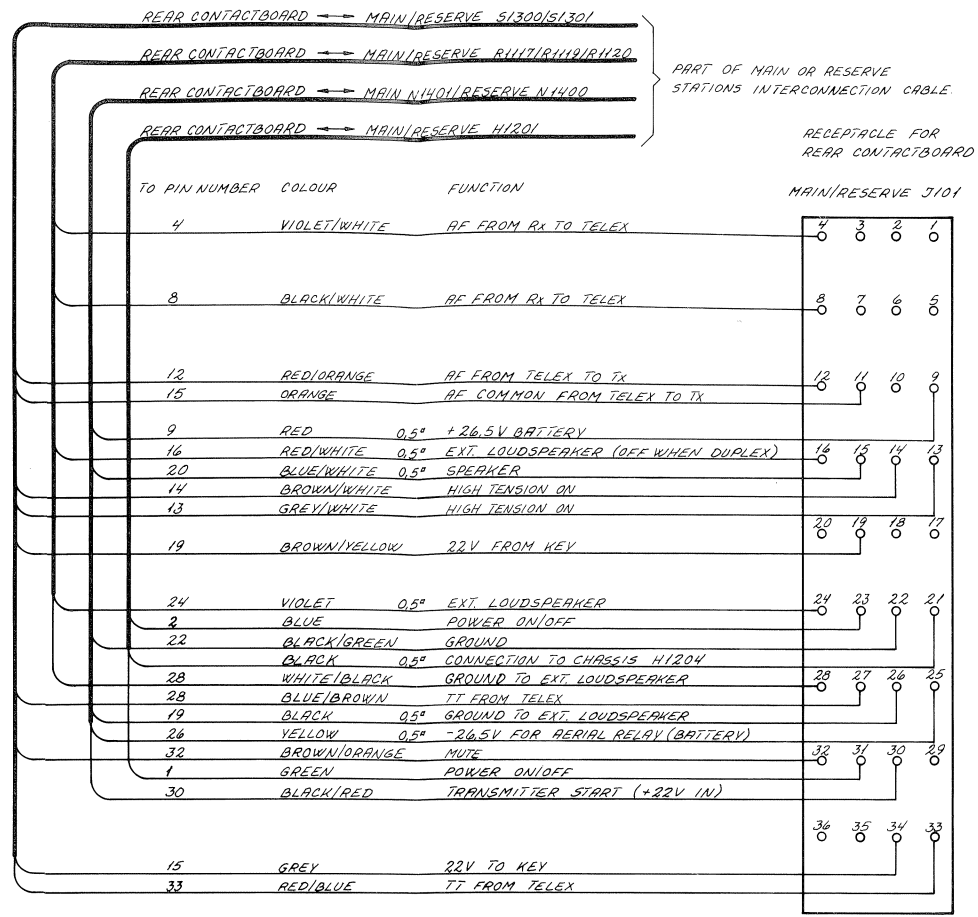 REAR CONTACTBOARD ↔ MAIN/RESERVE S1300/S1301
REAR CONTACTBOARD ↔ MAIN/RESERVE R1117/R1119/R1120
REAR CONTACTBOARD ↔ MAIN N1401/RESERVE N1400
REAR CONTACTBOARD ↔ MAIN/RESERVE H1201
PART OF MAIN OR RESERVE
STATIONS INTERCONNECTION CABLE.
RECEPTACLE FOR
REAR CONTACTBOARD
MAIN/RESERVE J101
TO PIN NUMBER COLOUR FUNCTION
4 VIOLET/WHITE AF FROM Rx TO TELEX
4 3 2 1
8 BLACK/WHITE AF FROM Rx TO TELEX
8 7 6 5
12 RED/ORANGE AF FROM TELEX TO Tx
12 11 10 9
15 ORANGE AF COMMON FROM TELEX TO TX
9 RED 0,5□ +26,5V BATTERY
16 RED/WHITE 0,5□ EXT. LOUDSPEAKER (OFF WHEN DUPLEX)
16 15 14 13
20 BLUE/WHITE 0,5□ SPEAKER
14 BROWN/WHITE HIGH TENSION ON
13 GREY/WHITE HIGH TENSION ON
20 19 18 17
19 BROWN/YELLOW 22V FROM KEY
24 VIOLET 0,5□ EXT. LOUDSPEAKER
24 23 22 21
2 BLUE POWER ON/OFF
22 BLACK/GREEN GROUND
BLACK 0,5□ CONNECTION TO CHASSIS H1204
28 WHITE/BLACK GROUND TO EXT. LOUDSPEAKER
28 27 26 25
28 BLUE/BROWN TT FROM TELEX
19 BLACK 0,5□ GROUND TO EXT. LOUDSPEAKER
26 YELLOW 0,5□ -26,5V FOR AERIAL RELAY (BATTERY)
32 BROWN/ORANGE MUTE
32 31 30 29
1 GREEN POWER ON/OFF
30 BLACK/RED TRANSMITTER START (+22V IN)
36 35 34 33
15 GREY 22V TO KEY
33 RED/BLUE TT FROM TELEX